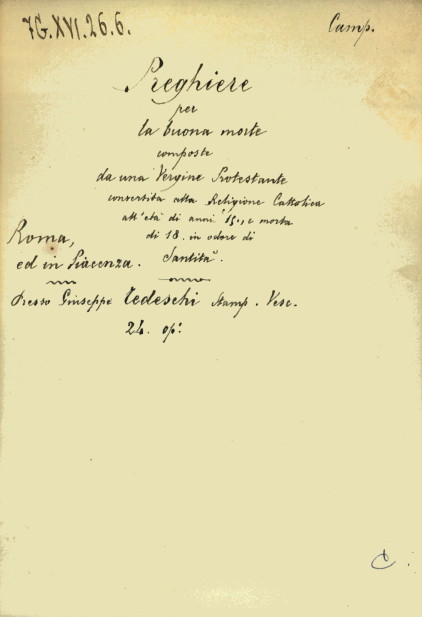 7G.XVI.26.6.
Camp.
Preghiere
per
la buona morte
composte
da una Vergine Protestante
convertita alla Religione Cattolica
all'età di anni 15., e morta
di 18. in odore di
Santità.
Roma,
ed in Piacenza.
Presso Giuseppe Tedeschi Stamp. Vesc.
24. op: